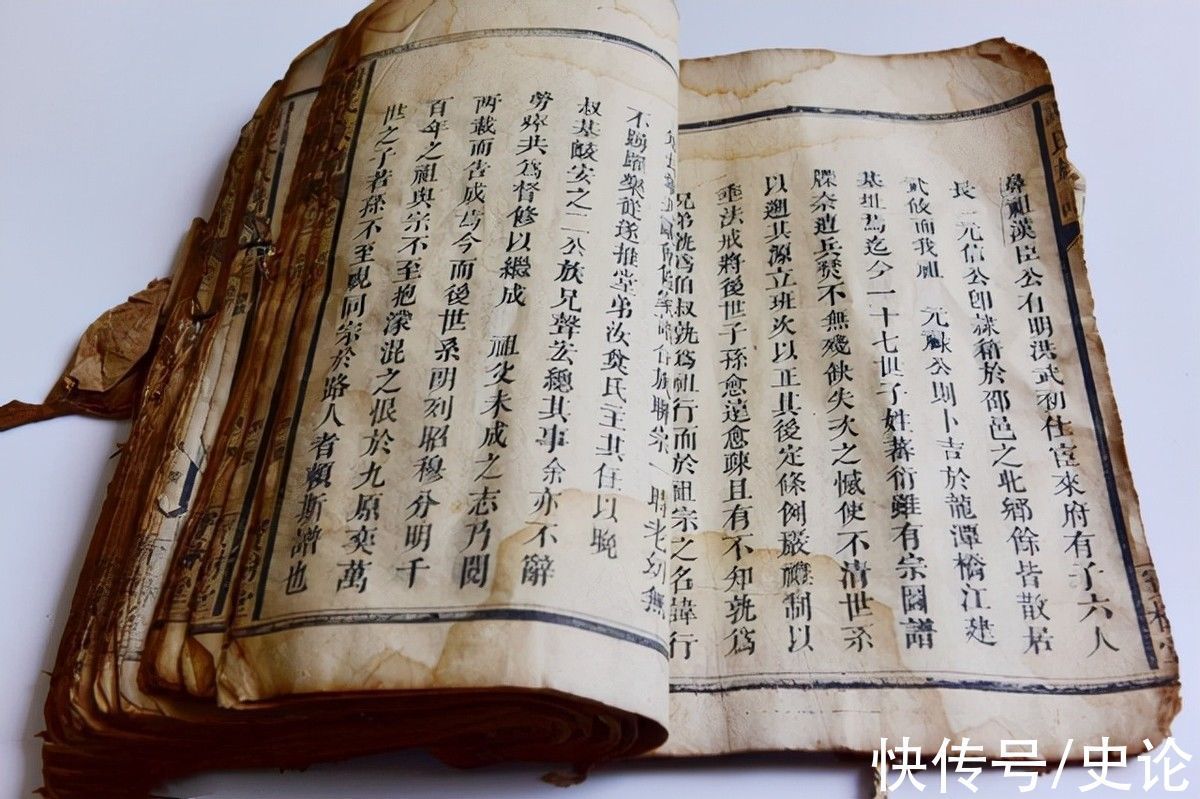 鼻祖漢臣公有明洪武初仕宦來府有子六人
長 元信公卽隸籍於邵邑之北鄉餘皆散居
攸而我祖 元公則卜吉於龍潭橋江建
基址焉迄今一十七世子姓蕃衍雖有宗圖譜
牒奈遭兵燹不無殘缺失次之憾使不清世系
以遡其源立班次以正其後定條例嚴禮制以
垂法戒將後世子孫愈遠愈疎且有不知孰爲
兄弟孰爲伯叔孰爲祖行而於祖宗之名諱行
合族聯宗一時老幼無
不踴躍樂從遂推堂弟汝爽民主其在以晩
叔基安之二公族兄聲宏總其事余亦不辭
勞瘁共爲督修以繼成 祖父未成之志乃閱
兩載而告成焉今而後世系明刻昭穆分明千
百年之祖與宗不至抱濛混之恨於九原奕萬
世之子若孫不至視同宗於路人者賴斯譜也
快传号/史论